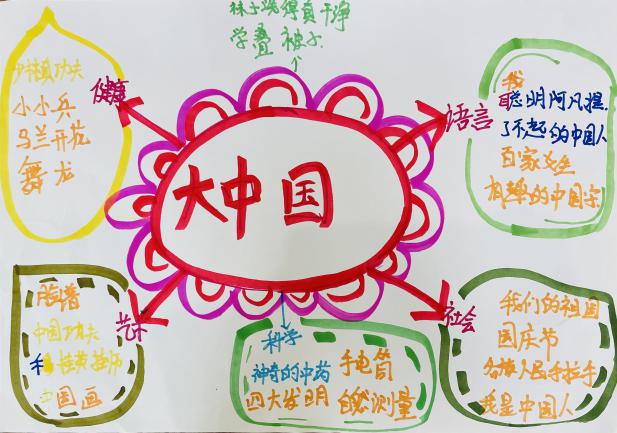 袜子洗得真干净
学叠被子
健康
少林真功夫
小小兵
马兰开花
舞龙
语言
我
聪明阿凡提
了不起的中国人
百家姓
有趣的中国字
大中国
艺术
脸谱
中国功夫
中国画
科学
神奇的中药
手电筒
四大发明
自然测量
社会
我们的祖国
国庆节
各族人民手拉手
我是中国人